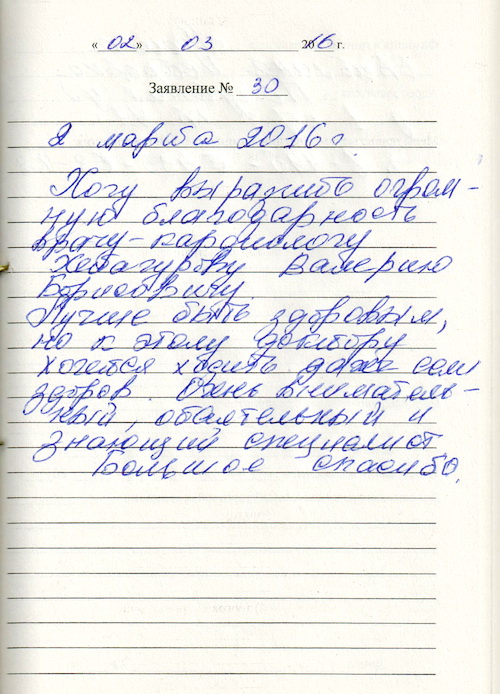 « 02 » 03 2016 г.
Заявление № 30
2 марта 2016 г.
Хочу выразить огром-
ную благодарность
врачу-кардиологу
Хетагурову Валерию
Борисовичу.
Лучше быть здоровым,
но к этому доктору
хочется ходить даже если
здоров. Очень вниматель-
ный, обаятельный и
знающий специалист.
Большое спасибо.